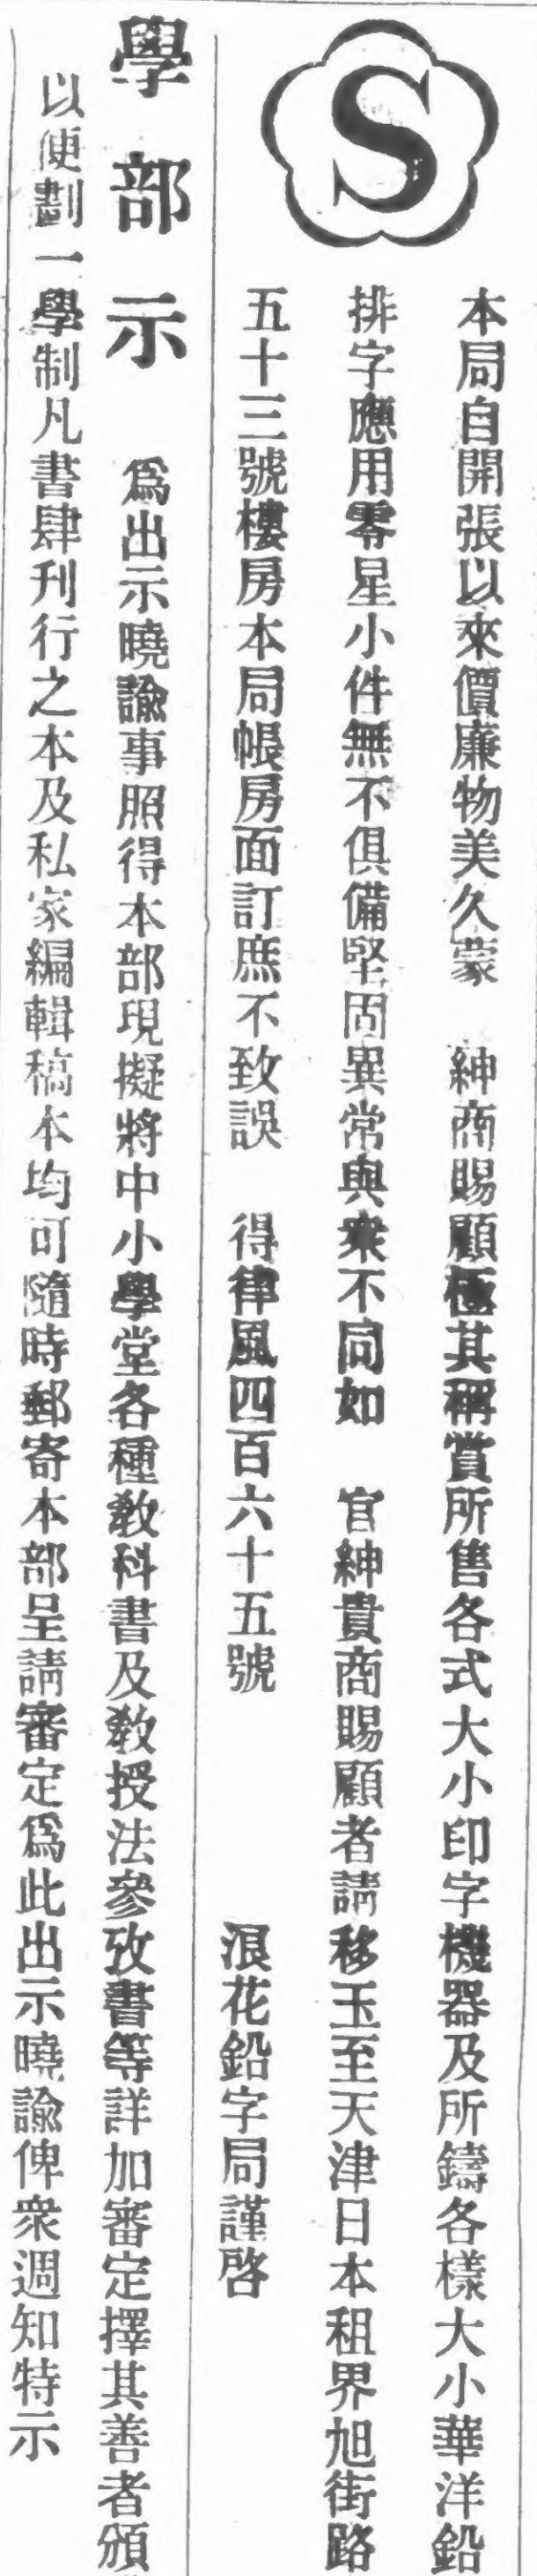 S
本局自開張以來價廉物美久蒙 紳商賜顧極其稱賞所售各式大小印字機器及所鑄各樣大小華洋鉛
排字應用零星小件無不俱備堅固異常與衆不同如 官紳貴商賜顧者請移玉至天津日本租界旭街路
五十三號樓房本局帳房面訂庶不致誤 得律風四百六十五號 浪花鉛字局謹啓
學部示 爲出示曉諭事照得本部現擬將中小學堂各種敎科書及敎授法參攷書等詳加審定擇其善者頒
以便劃一學制凡書肆刊行之本及私家編輯稿本均可隨時郵寄本部呈請審定爲此出示曉諭俾衆週知特示